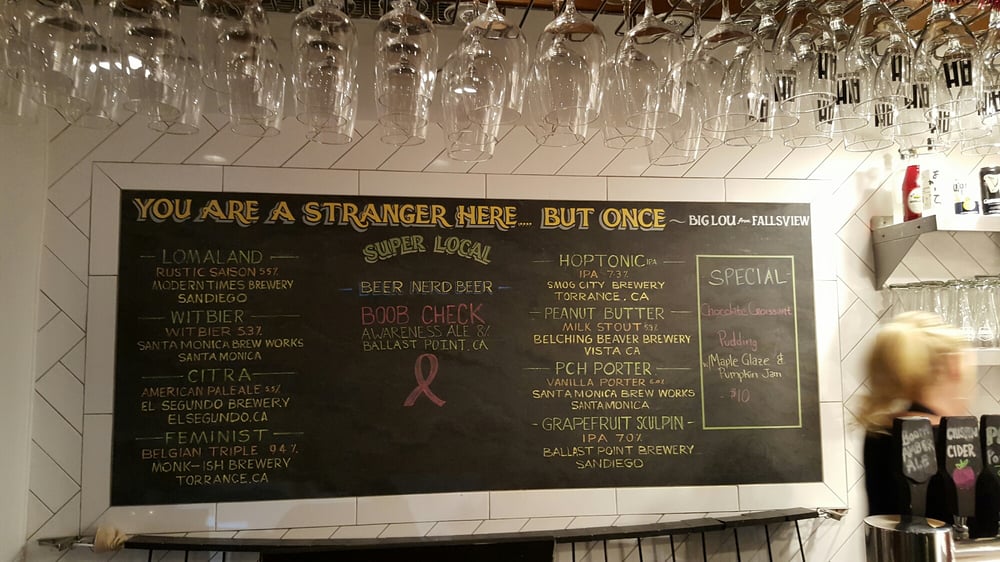 YOU ARE A STRANGER HERE.... BUT ONCE ~ BIG LOU from FALLSVIEW
SUPER LOCAL
LOMALAND
RUSTIC SAISON 5.5%
MODERN TIMES BREWERY
SANDIEGO
WITBIER
WITBIER 5.3%
SANTA MONICA BREW WORKS
SANTA MONICA
CITRA
AMERICAN PALE ALE 5.5%
EL SEGUNDO BREWERY
EL SEGUNDO, CA
FEMINIST
BELGIAN TRIPLE 9.4%
MONK-ISH BREWERY
TORRANCE, CA
BEER NERD BEER
BOOB CHECK
AWARENESS ALE 8%
BALLAST POINT, CA
HOPTONIC IPA
IPA 7.3%
SMOG CITY BREWERY
TORRANCE, CA
PEANUT BUTTER
MILK STOUT
BELCHING BEAVER BREWERY
VISTA CA
PCH PORTER
VANILLA PORTER
SANTA MONICA BREW WORKS
SANTAMONICA
GRAPEFRUIT SCULPIN
IPA 7.0%
BALLAST POINT BREWERY
SANDIEGO
SPECIAL
Chocolate Croissant
Pudding
w/ Maple Glaze &
Pumpkin Jam
- $10
AMBER
ALE
CIDER